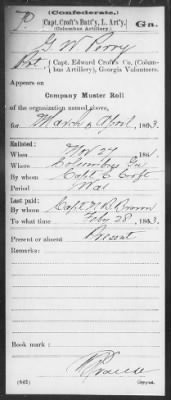 P
(Confederate.)
Capt. Croft's Batt'y, L. Art'y. Ga.
(Columbus Artillery.)
G W Perry
Pvt, Capt. Edward Croft's Co. (Colum-
bus Artillery), Georgia Volunteers.
Appears on
Company Muster Roll
of the organization named above,
for March & April, 1863.
Enlisted:
When Nov 27, 186
Where Columbus Ga
By whom Capt E Croft
Period War
Last paid:
By whom Capt Brown
To what time Feby 28, 1863.
Present or absent Present
Remarks:
Book mark:
(642) Copyist.